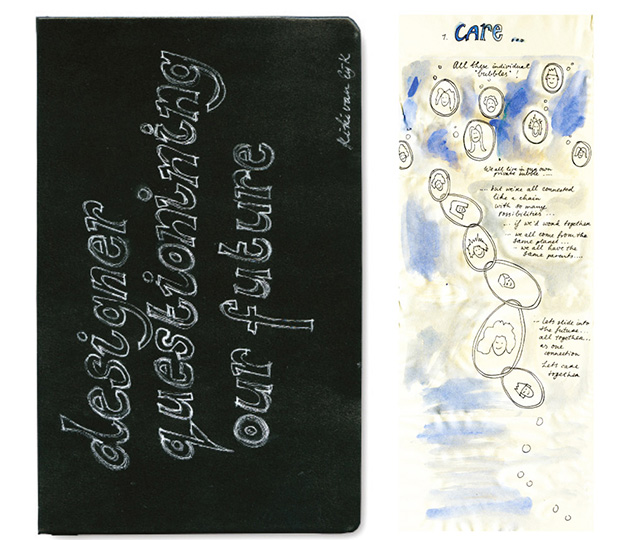 designer
questionining
our future
Kiki van Eyk
1. CARE ...
All these individual
"bubbles" !
We all live in our own
private bubble ....
.... but we're all connected
like a chain
with so many
possibilities ...
... if we'd work together
– we all come from the
same planet ...
– we all have the
same parents ....
... Lets slide into
the future ...
all together ...
as one
connection
Lets care
together